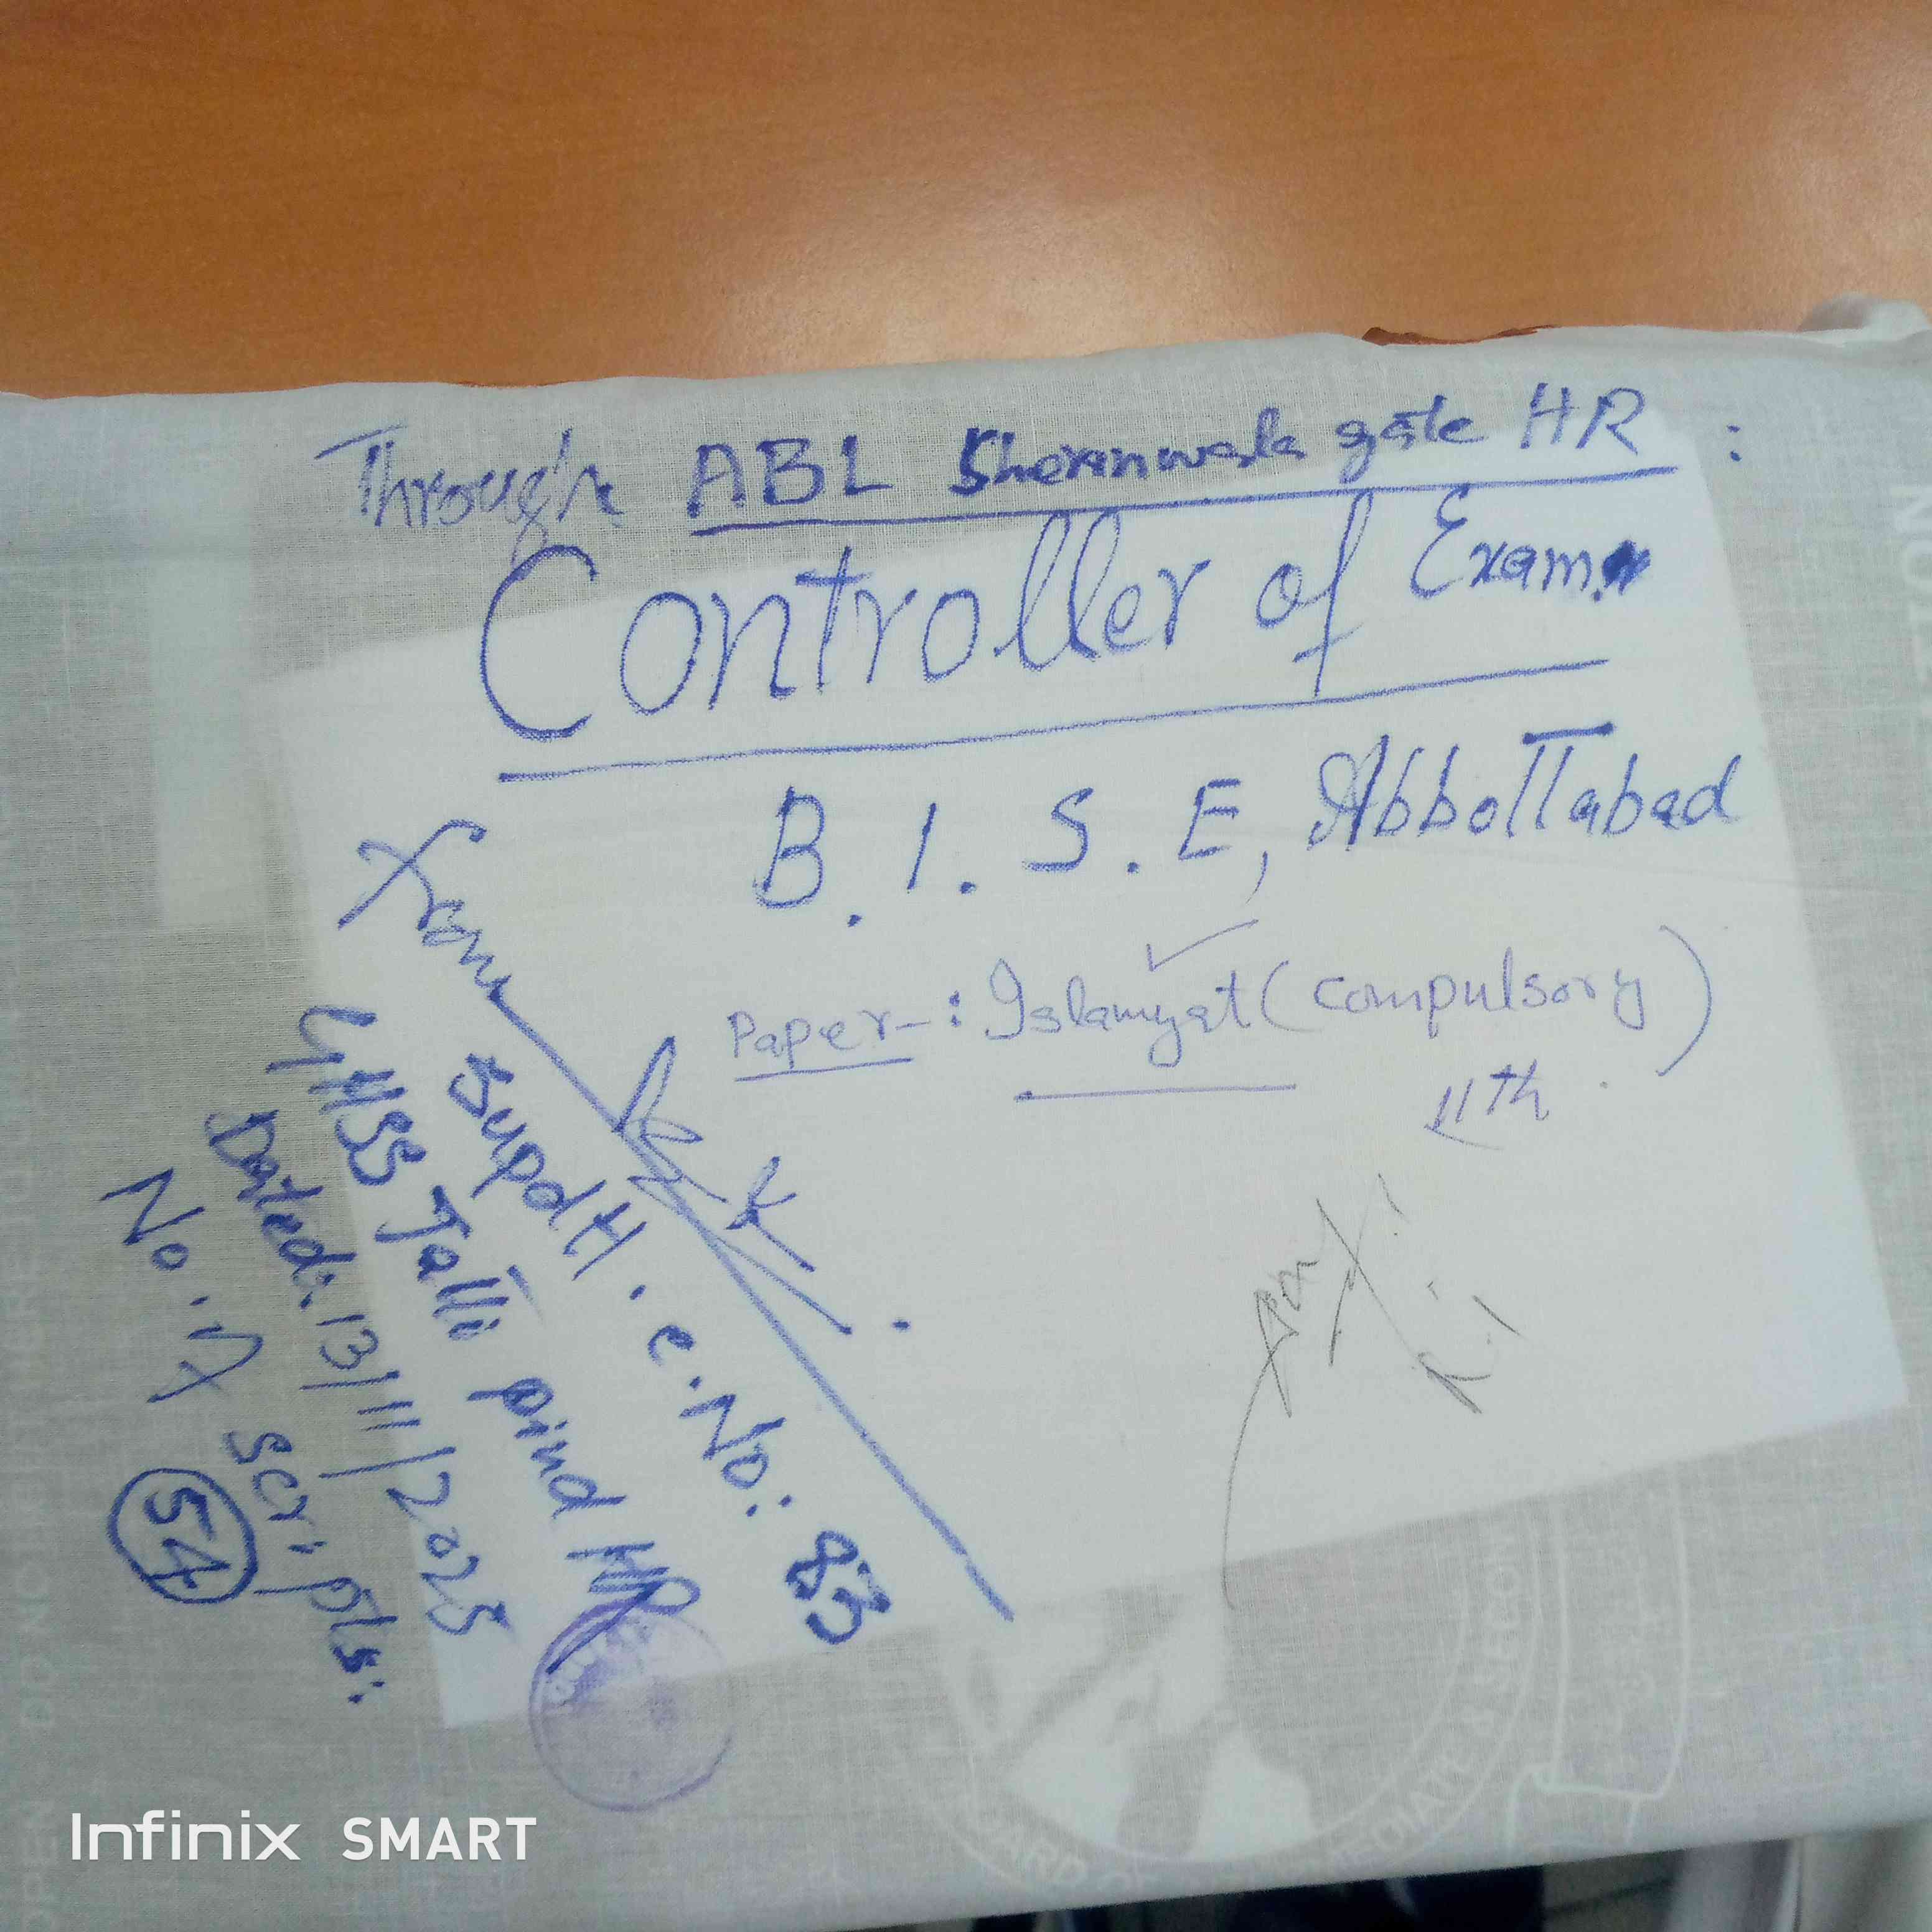 Through ABL Sheranwala gate HR :
Controller of Exam.
B.I.S.E, Abbottabad
Paper-: Islamyat (Compulsory)
11th.
From
Supdtt. C.No: 83
GHSS Jatti pind HR
Dated: 13/11/2025
No. of scripts:
54
Infinix SMART